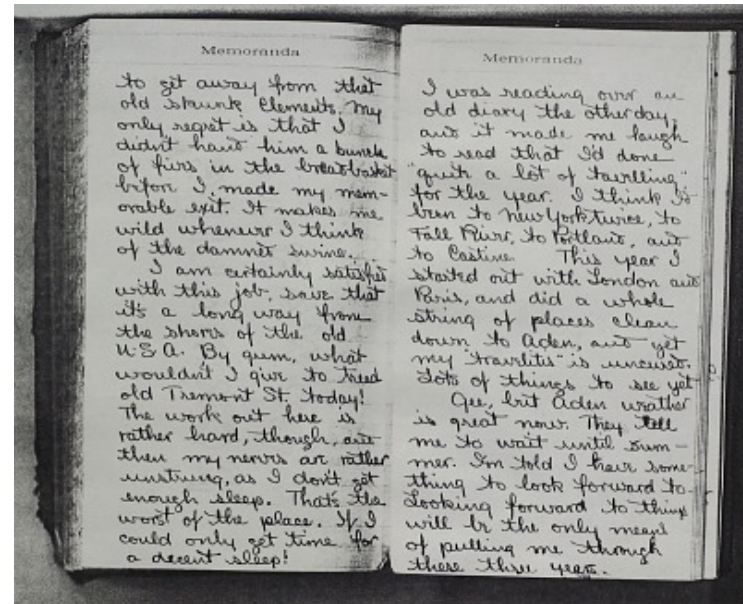 Memoranda
to get away from that
old skunk Clements. My
only regret is that I
didn't hand him a bunch
of fives in the breadbasket
before I made my mem-
orable exit. It makes me
wild whenever I think
of the damned swine.
I am certainly satisfied
with this job, save that
it's a long way from
the shores of the old
U.S.A. By gum, what
wouldn't I give to tread
old Tremont St. today!
The work out here is
rather hard, though, and
then my nerves are rather
unstrung, as I don't get
enough sleep. That's the
worst of the place. If I
could only get time for
a decent sleep!
Memoranda
I was reading over an
old diary the other day,
and it made me laugh
to read that I'd done
"quite a lot of travelling"
for the year. I think I'd
been to New York twice, to
Fall River, to Portland, and
to Castine. This year I
started out with London and
Paris, and did a whole
string of places clean
down to Aden, and yet
my "travelitis" is uncured.
Lots of things to see yet
Gee, but Aden weather
is great now. They tell
me to wait until sum-
mer. I'm told I have some-
thing to look forward to.
Looking forward to things
will be the only means
of pulling me through
these three years.